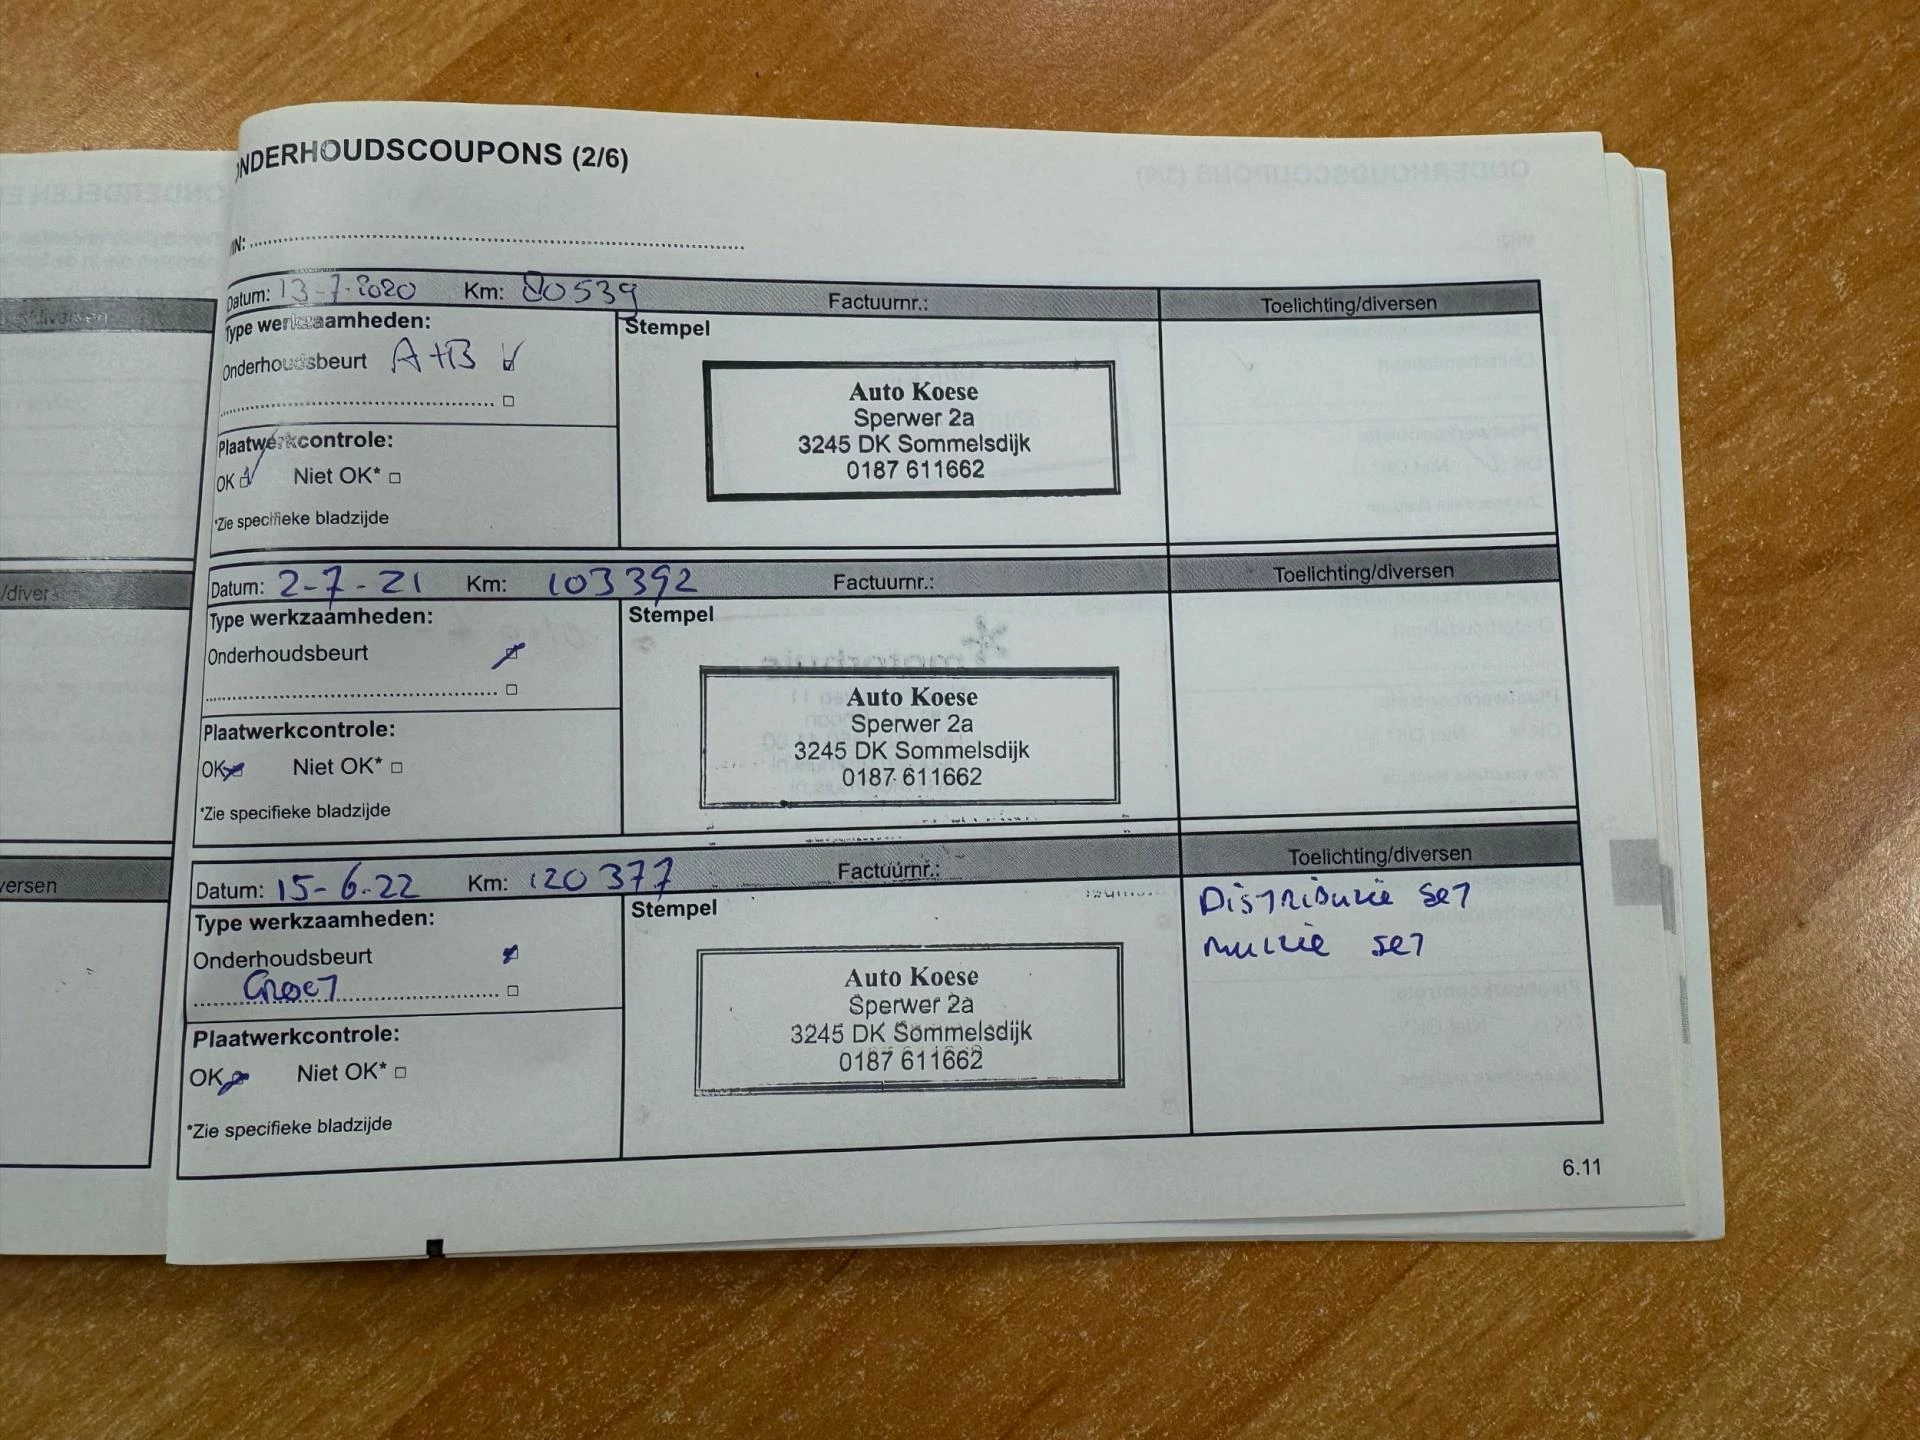 ONDERHOUDSCOUPONS (2/6)
VIN:
Datum: 13-7-2020 Km: 80539 Factuurnr.: Toelichting/diversen
Type werkzaamheden: Stempel
Onderhoudsbeurt A+B
Auto Koese
Sperwer 2a
3245 DK Sommelsdijk
0187 611662
Plaatwerkcontrole:
OK Niet OK*
*Zie specifieke bladzijde
Datum: 2-7-21 Km: 103392 Factuurnr.: Toelichting/diversen
Type werkzaamheden: Stempel
Onderhoudsbeurt
Auto Koese
Sperwer 2a
3245 DK Sommelsdijk
0187 611662
Plaatwerkcontrole:
OK Niet OK*
*Zie specifieke bladzijde
Datum: 15-6-22 Km: 120377 Factuurnr.: Toelichting/diversen
Type werkzaamheden: Stempel
Onderhoudsbeurt
Groot
Auto Koese
Sperwer 2a
3245 DK Sommelsdijk
0187 611662
Distributie set
multie set
Plaatwerkcontrole:
OK Niet OK*
*Zie specifieke bladzijde
6.11